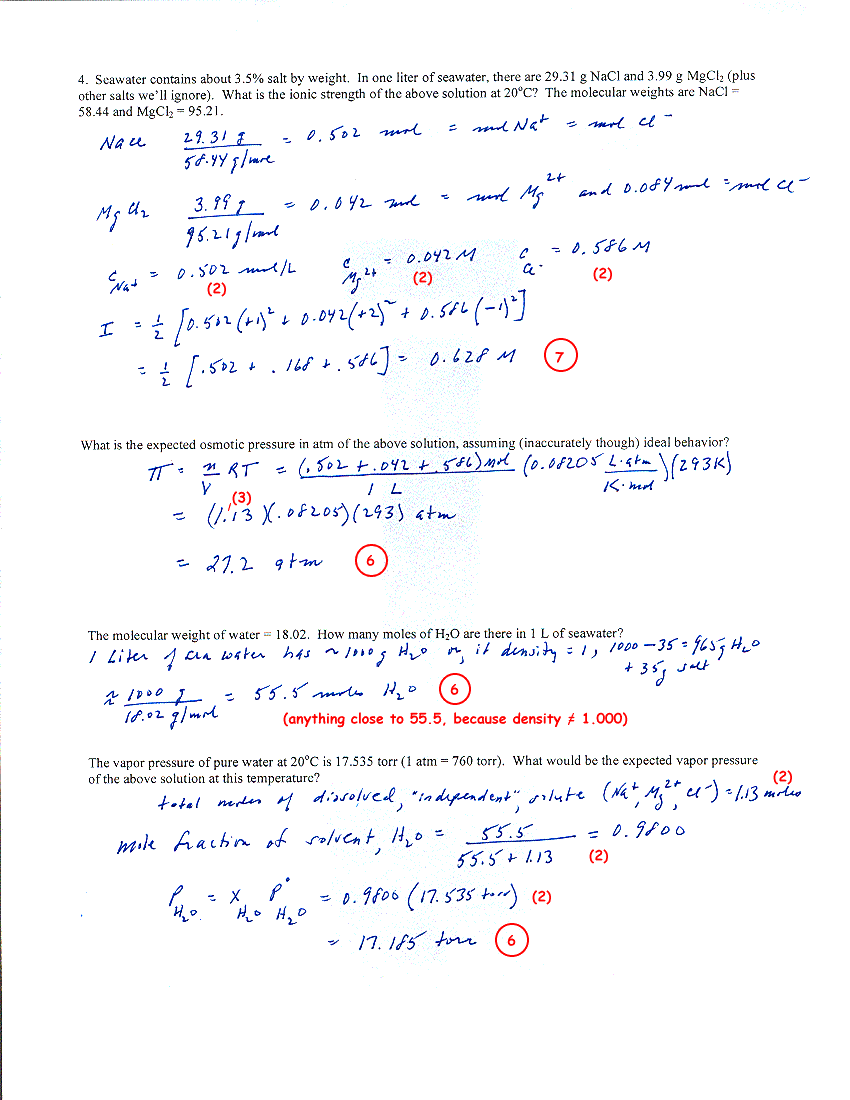 4. Seawater contains about 3.5% salt by weight. In one liter of seawater, there are 29.31 g NaCl and 3.99 g MgCl₂ (plus
other salts we'll ignore). What is the ionic strength of the above solution at 20°C? The molecular weights are NaCl =
58.44 and MgCl₂ = 95.21.
NaCl 29.31 g / 58.44 g/mol = 0.502 mol = mol Na⁺ = mol Cl⁻
MgCl₂ 3.99 g / 95.21 g/mol = 0.042 mol = mol Mg²⁺ and 0.084 mol = mol Cl⁻
C Na⁺ = 0.502 mol/L C Mg²⁺ = 0.042 M C Cl⁻ = 0.586 M
(2) (2) (2)
I = 1/2 [0.502 (+1)² + 0.042 (+2)² + 0.586 (-1)²]
= 1/2 [.502 + .168 + .586] = 0.628 M 7
What is the expected osmotic pressure in atm of the above solution, assuming (inaccurately though) ideal behavior?
π = n/V RT = (.502 + .042 + .586) mol / 1 L (0.08205 L·atm / K·mol) (293K)
(3)
= (1.13)(.08205)(293) atm
= 27.2 atm 6
The molecular weight of water = 18.02. How many moles of H₂O are there in 1 L of seawater?
1 Liter of sea water has ~1000 g H₂O or, if density = 1, 1000 - 35 = 965 g H₂O
+ 35 g salt
≈ 1000 g / 18.02 g/mol = 55.5 moles H₂O 6
(anything close to 55.5, because density ≠ 1.000)
The vapor pressure of pure water at 20°C is 17.535 torr (1 atm = 760 torr). What would be the expected vapor pressure
of the above solution at this temperature? (2)
total moles of dissolved, "independent", solute (Na⁺, Mg²⁺, Cl⁻) = 1.13 moles
mole fraction of solvent, H₂O = 55.5 / 55.5 + 1.13 = 0.9800
(2)
P H₂O = X H₂O P° H₂O = 0.9800 (17.535 torr) (2)
= 17.185 torr 6